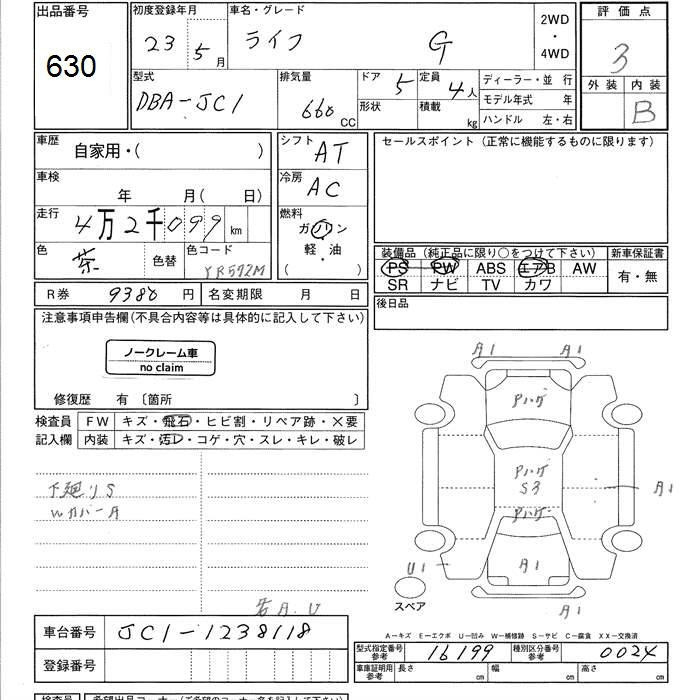 出品番号
630
初度登録年月
23 5月
車名・グレード
ライフ G
2WD
・
4WD
評価点
3
外装 内装
B
型式
DBA-JC1
排気量
660 CC
ドア 5
形状
定員 4人
積載 kg
ディーラー・並 行
モデル年式 年
ハンドル 左・右
車歴
自家用・( )
シフト AT
セールスポイント (正常に機能するものに限ります)
車検
年 月( 日)
冷房 AC
走行 4万2千099 km
燃料
ガソリン
・
軽・油
( )
色 茶 色替
色コード YR592M
装備品 (純正品に限り○をつけて下さい)
PS PW ABS エアB AW
SR ナビ TV カワ
新車保証書
有・無
R券 9380 円
名変期限 月 日
後日品
注意事項申告欄(不具合内容等は具体的に記入して下さい)
ノークレーム車
no claim
修復歴 有 〔箇所 〕
検査員
記入欄
FW キズ・飛石・ヒビ割・リペア跡・×要
内装 キズ・汚レ・コゲ・穴・スレ・キレ・破レ
下廻りS
WカバーA
A1 A1
Pハゲ
Pハゲ
S3
Pハゲ
A1
U1
A1
A1
スペア
A.U
A－キズ E－エクボ U－凹み W－補修跡 S－サビ C－腐食 XX－交換済
車台番号 JC1-1238118
登録番号
型式指定番号
参考
16199
種別区分番号
参考
0024
車庫証明用
参考
長さ cm
幅 cm
高さ cm
検査員
希望出品コーナー (ご希望のコーナー名を記入下さい)